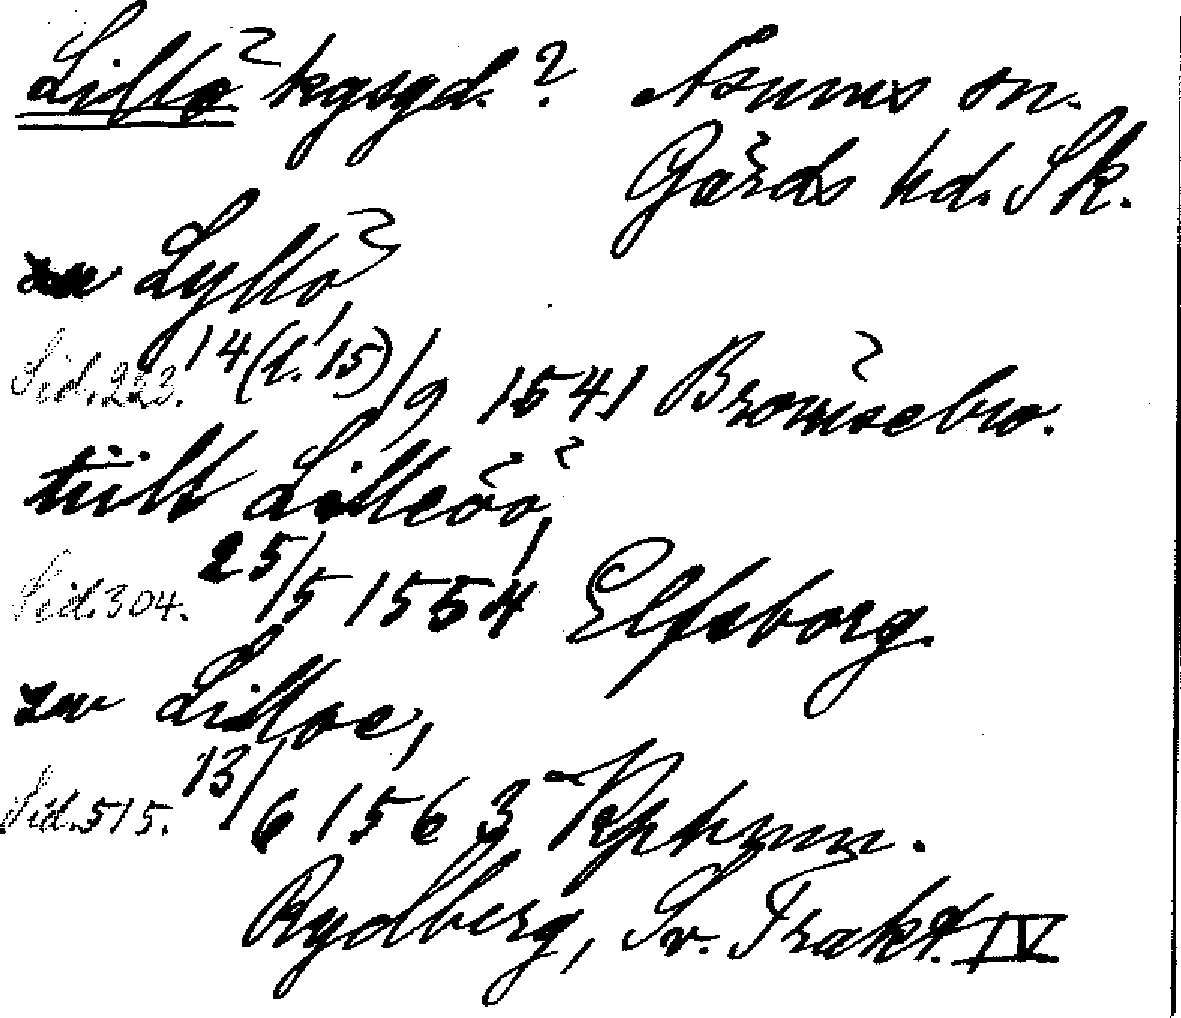 Lillö kgsgd.? Åsums sn.
Gärds hd. Sk.
zu Lyllö,
Sid.222. 14(l. 15)/9 1541 Brömsebro.
tiill Lilleöö,
Sid.304. 25/5 1554 Elfsborg.
zu Lilloe,
Sid.515. 13/6 1563 Kphmn.
Rydberg, Sv. Trakt. IV